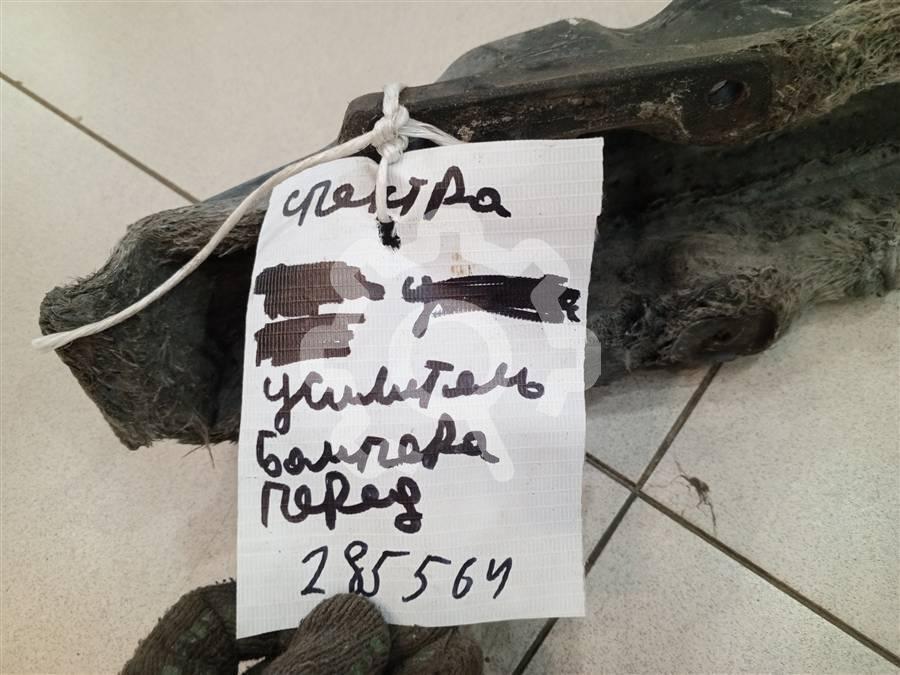 спектра
усилитель
бампера
перед
285564